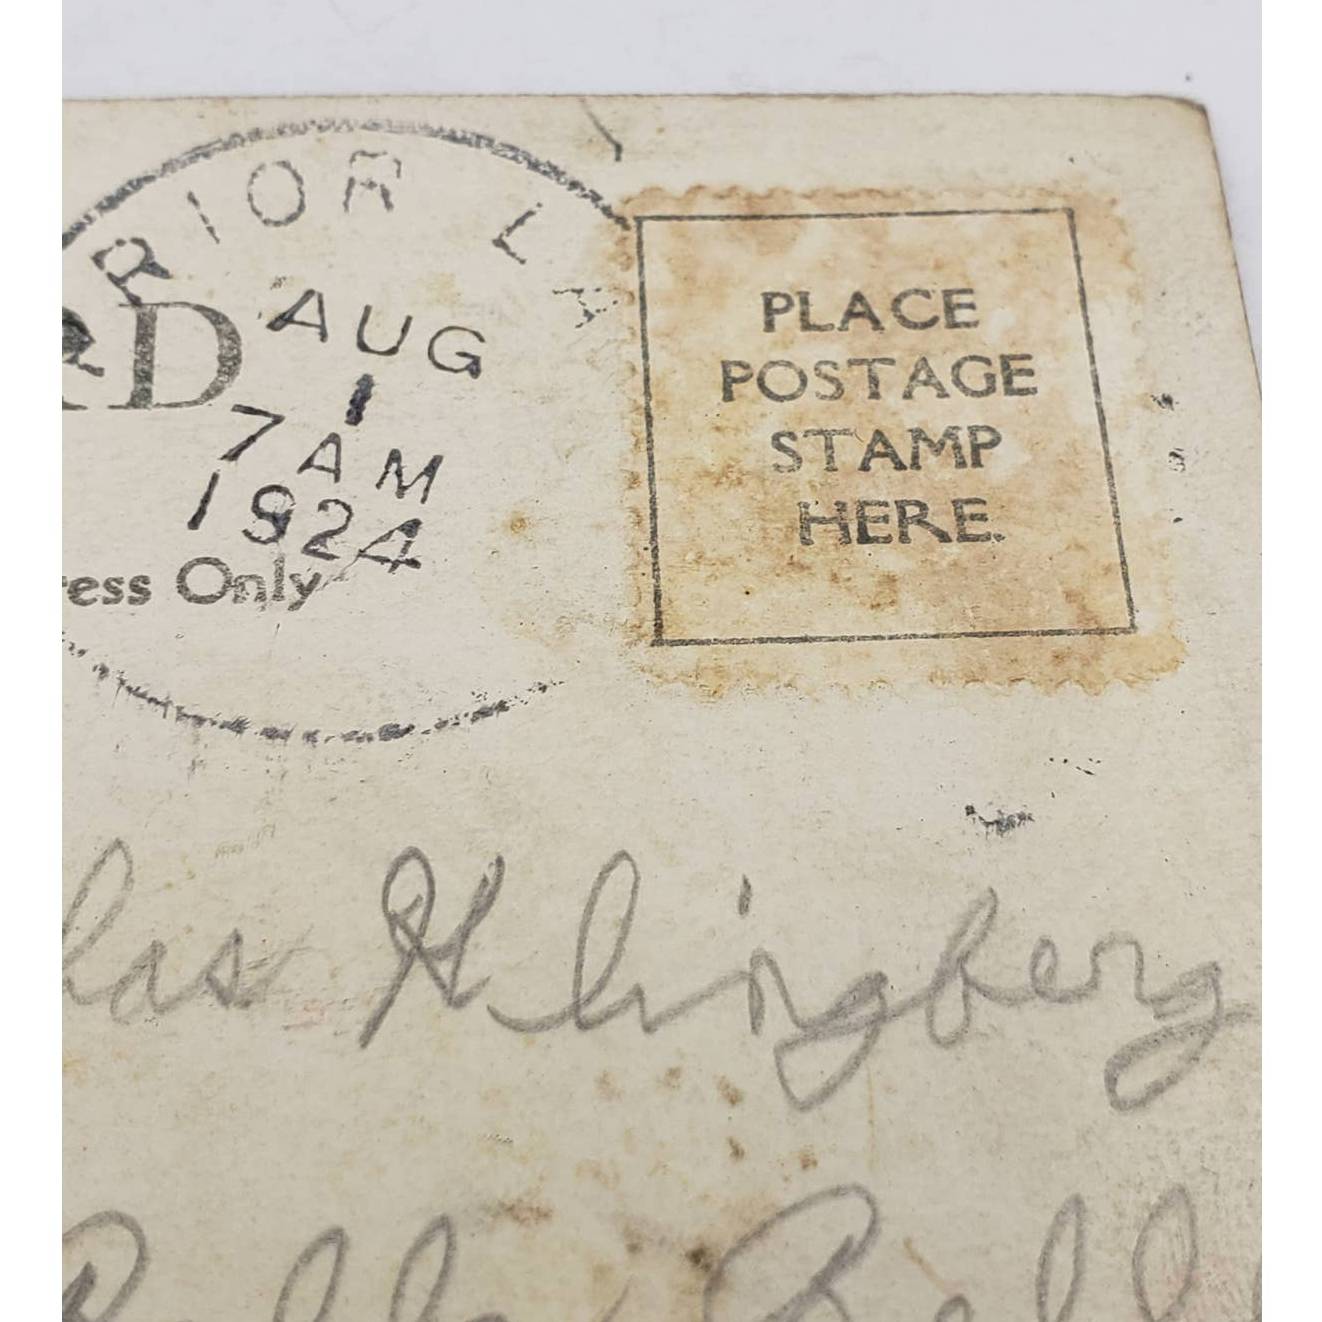 PRIOR LA
RD
AUG
1
7 AM
1924
ress Only
PLACE
POSTAGE
STAMP
HERE.
has Klingberg